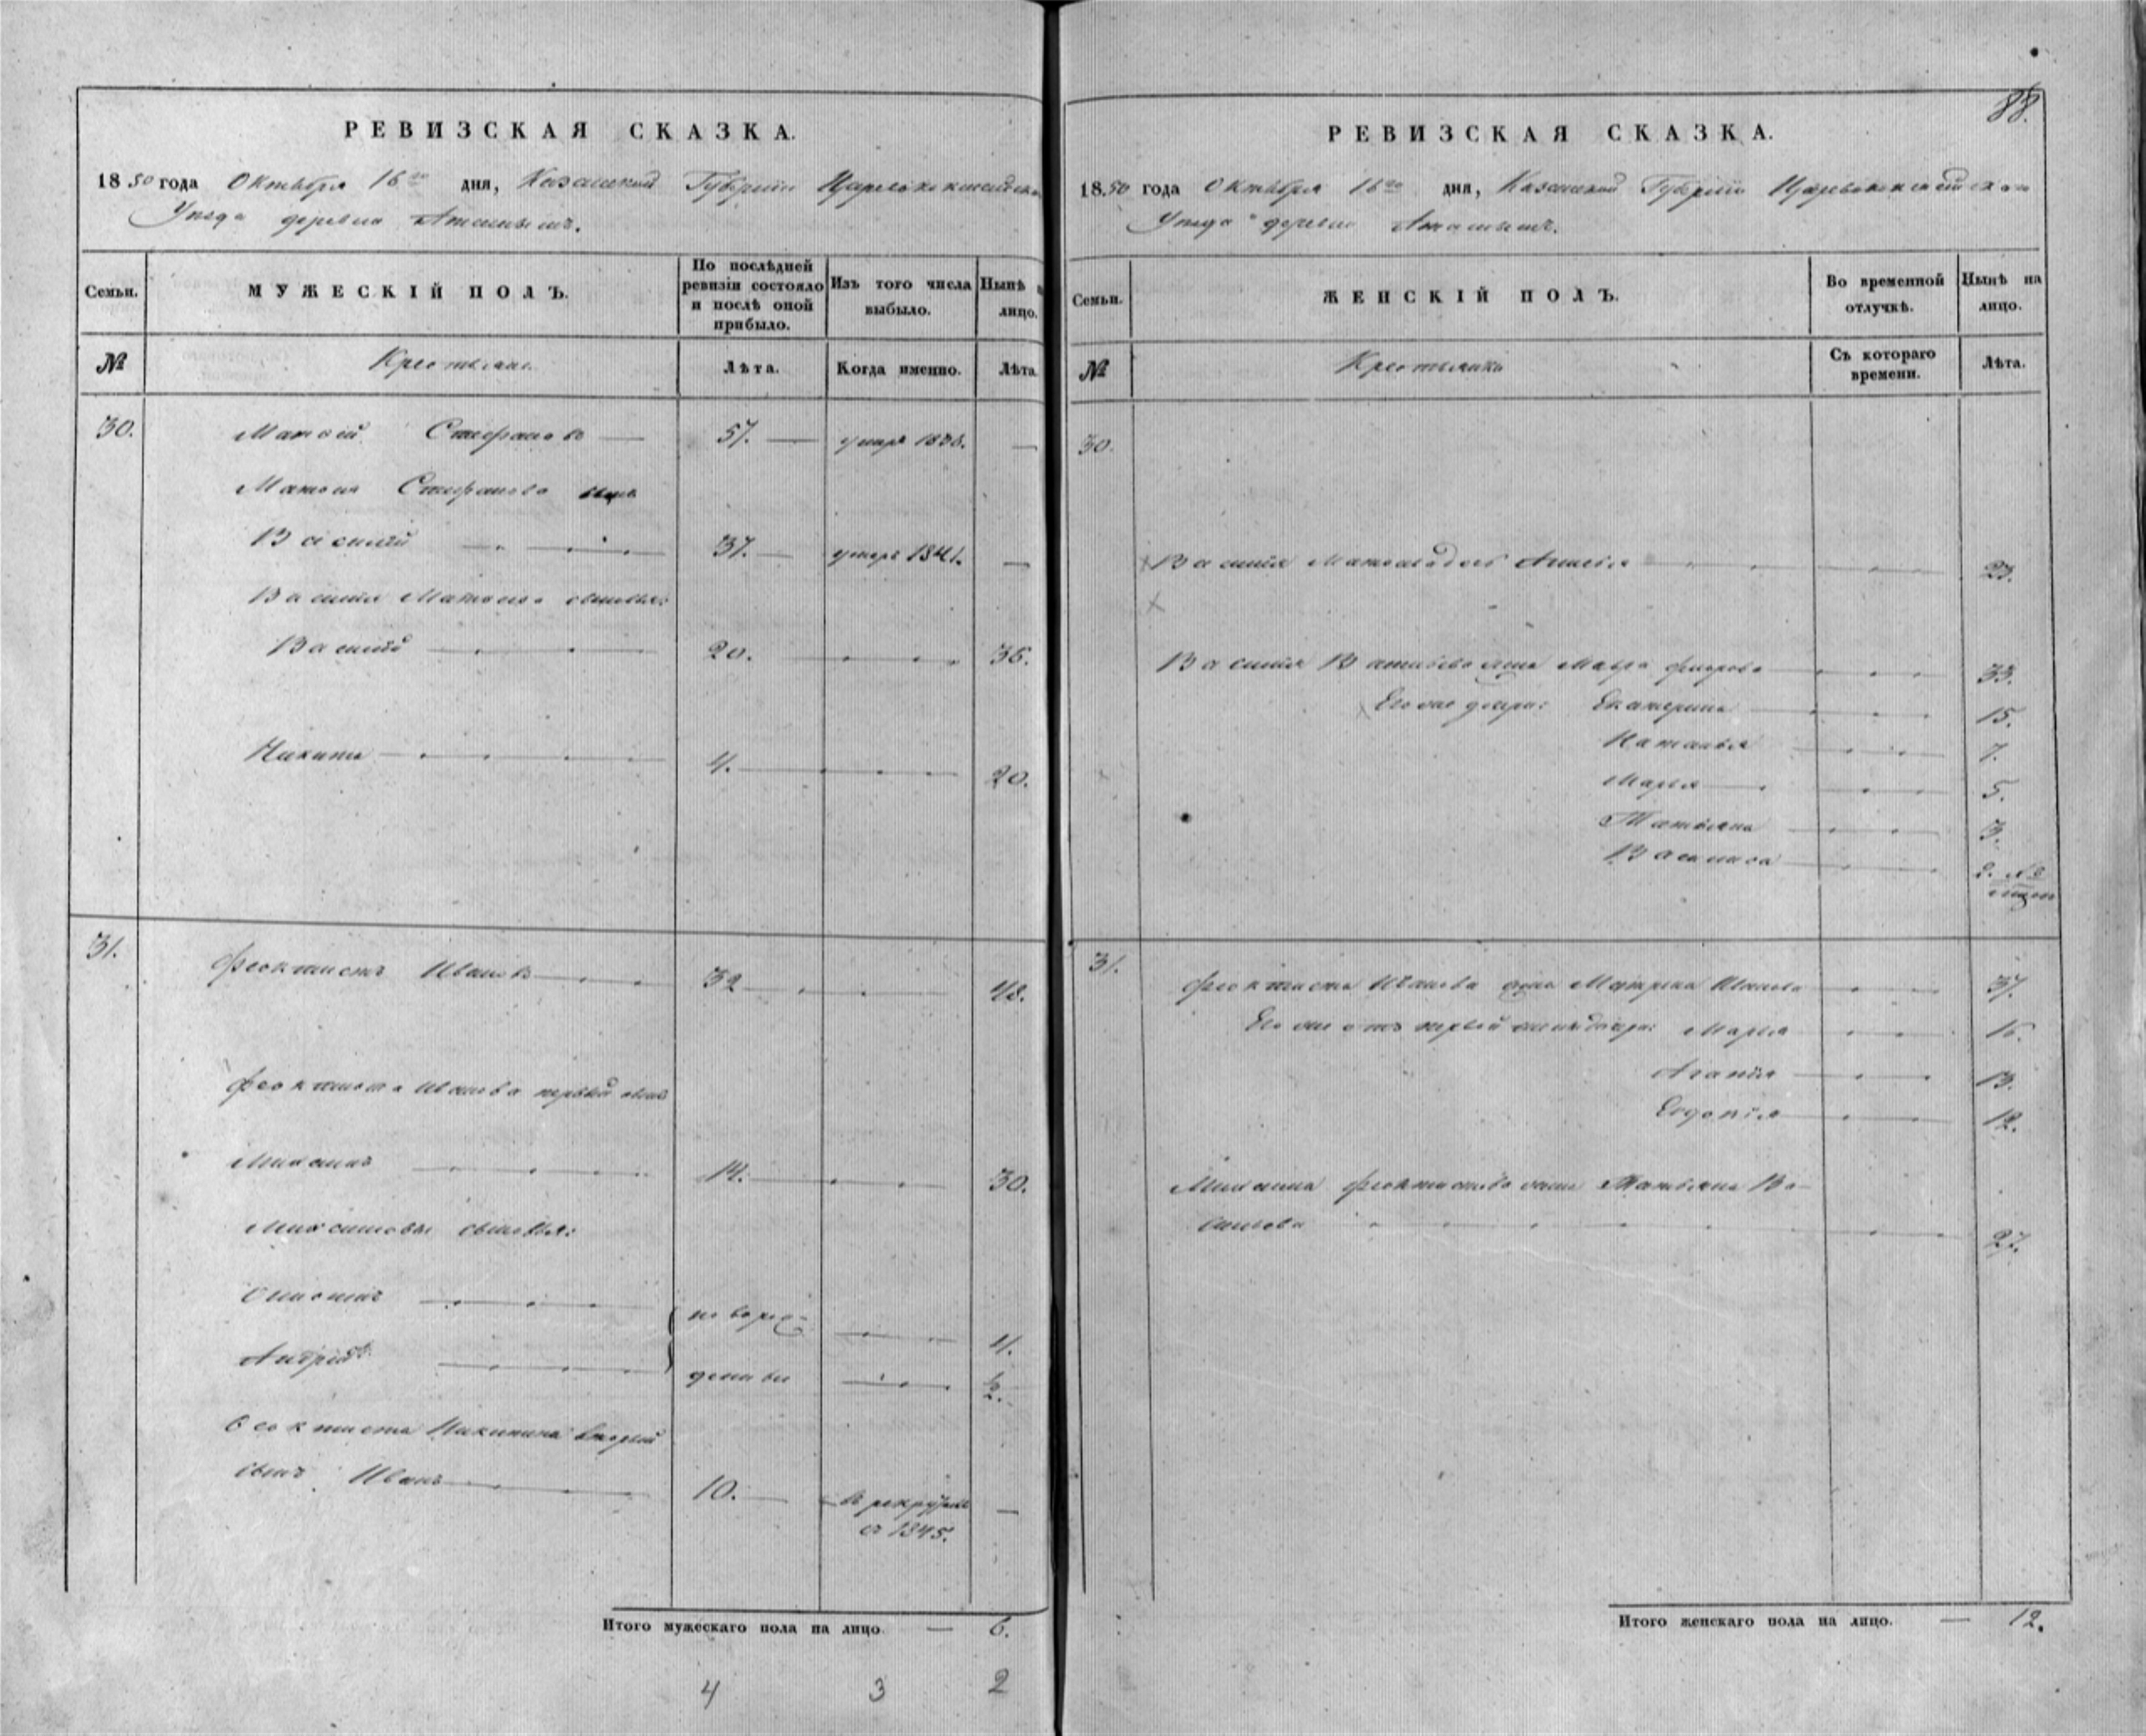 РЕВИЗСКАЯ СКАЗКА.
1850 года Октября 16го дня, Казанской Губернiи Царевококшайскаго
Уезда деревна
Семьи.
МУЖЕСКIЙ ПОЛЪ.
По послѣдней ревизiи состояло и послѣ оной прибыло.
Изъ того числа выбыло.
Нынѣ на лицо.
№
Крестьяне.
Лѣта.
Когда именно.
Лѣта.
30. Матвей Степановъ — 57. — умеръ 183 —
Матвея Степанова сынъ
Василiй 37. — умеръ 1841. —
Василiя Матвеева сыновья:
Василiй 20. 36.
Никита 4. 20.
31. Феоктистъ Ивановъ 32 48.
Феоктиста Иванова первый сынъ
14. 30.
сыновья:
новорож- 4.
Андрей денные ½.
Феоктиста Никитина второй
сынъ Иванъ 10. — въ рекруты —
съ 1845.
Итого мужескаго пола на лицо — 6.
4 3 2
88.
РЕВИЗСКАЯ СКАЗКА.
1850 года Октября 16го дня, Казанской Губернiи Царевококшайскаго
Уезда деревни
Семьи.
ЖЕНСКIЙ ПОЛЪ.
Во временной отлучкѣ.
Нынѣ на лицо.
№
Крестьянки
Съ котораго времени.
Лѣта.
30.
Василiя Матвеева дочь 23.
Василiя Васильева жена Мавра 33.
Его же дочери: Екатерина 15.
Наталья 7.
Марья 5.
Татьяна 3.
Василиса
31. Феоктиста Иванова жена Матрена Иванова 37.
Его же отъ первой жены дочери: Марья 16.
Агапiя 13.
Евдокiя 12.
Феоктистова жена Татьяна Ва-
сильева 27.
Итого женскаго пола на лицо. — 12.